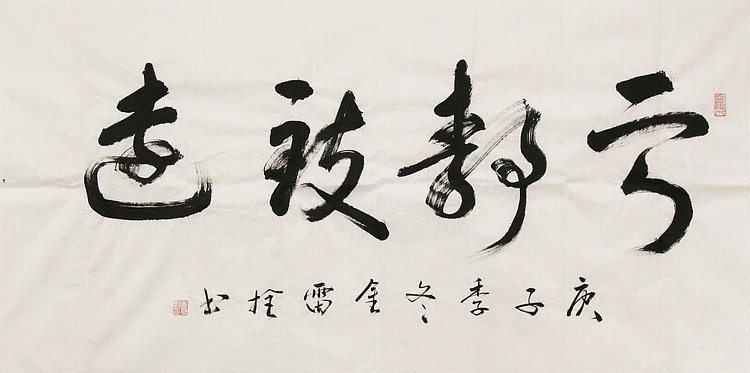 宁静致远
庚子季冬金雷书